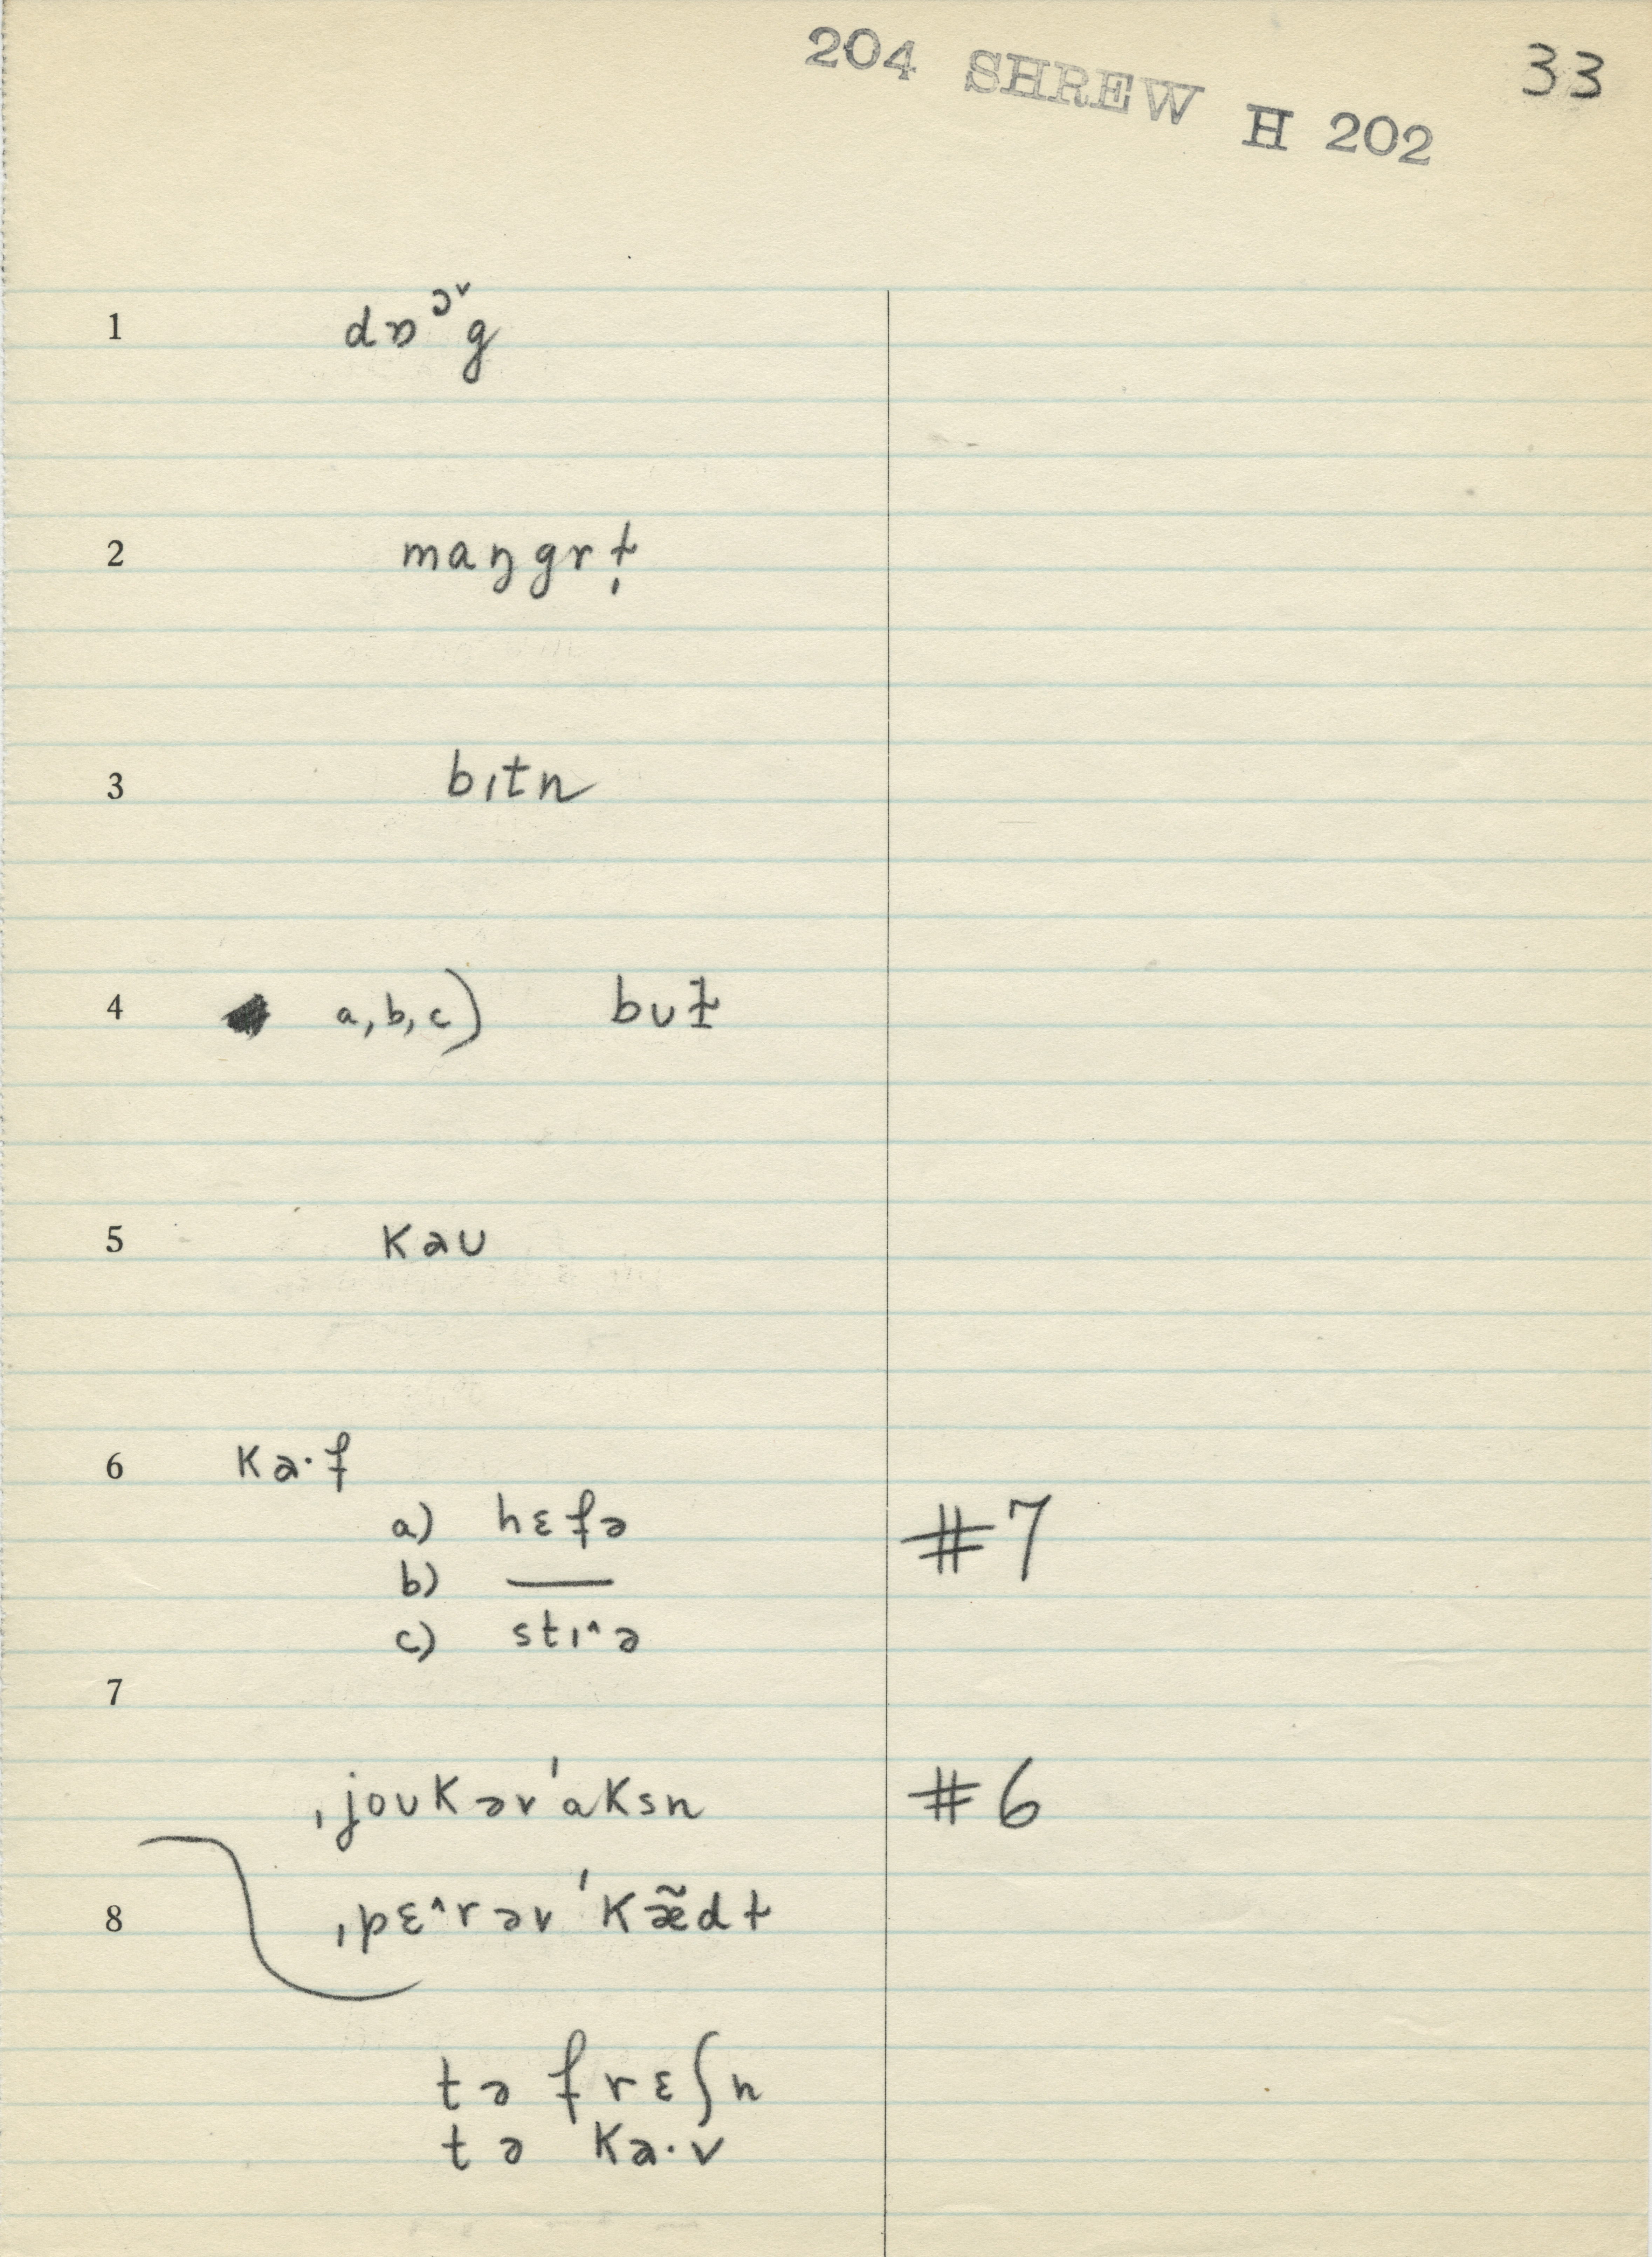 204 SHREW H 202
33
1 dɒᵓˇg
2 maŋgrt̩
3 bɪtn
4 a, b, c) bʊɫ
5 kaʊ
6 ka·f
a) hɛfə #7
b) —
c) stɪ^ə
7
ˌjoʊkəv'aksn #6
8 ˌpɛ^rəv'kæ̃dɫ
tə frɛʃn
tə ka·v